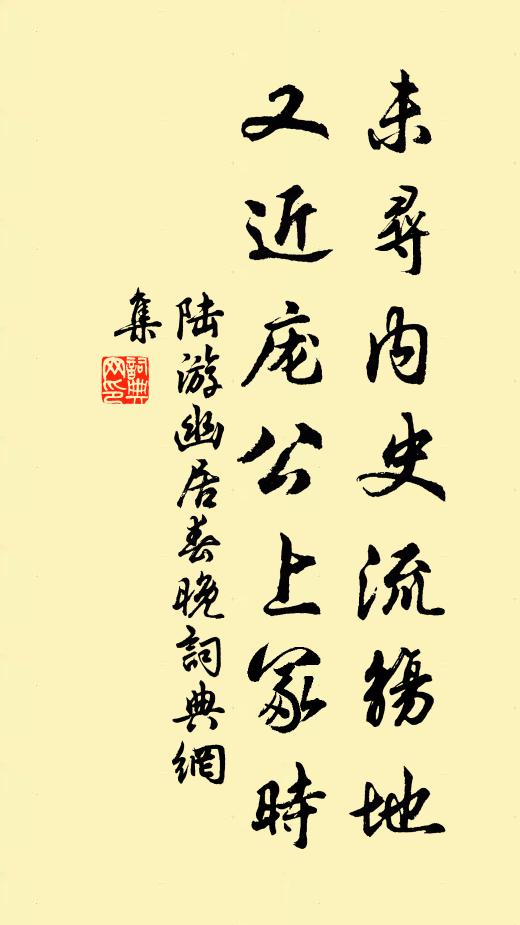 未尋内史流觴地
又近庞公上冢時
陆游幽居春晚詞典網
集
詞典网印